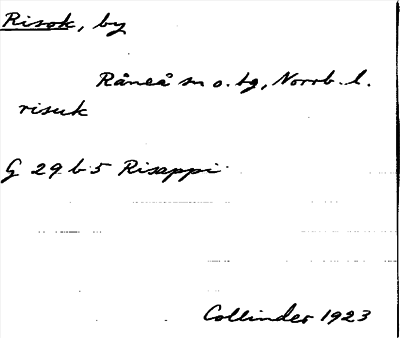 Risok, by
Råneå sn o. tg, Norrb. l.
risuk
G 29 b 5 Risappi
Collinder 1923